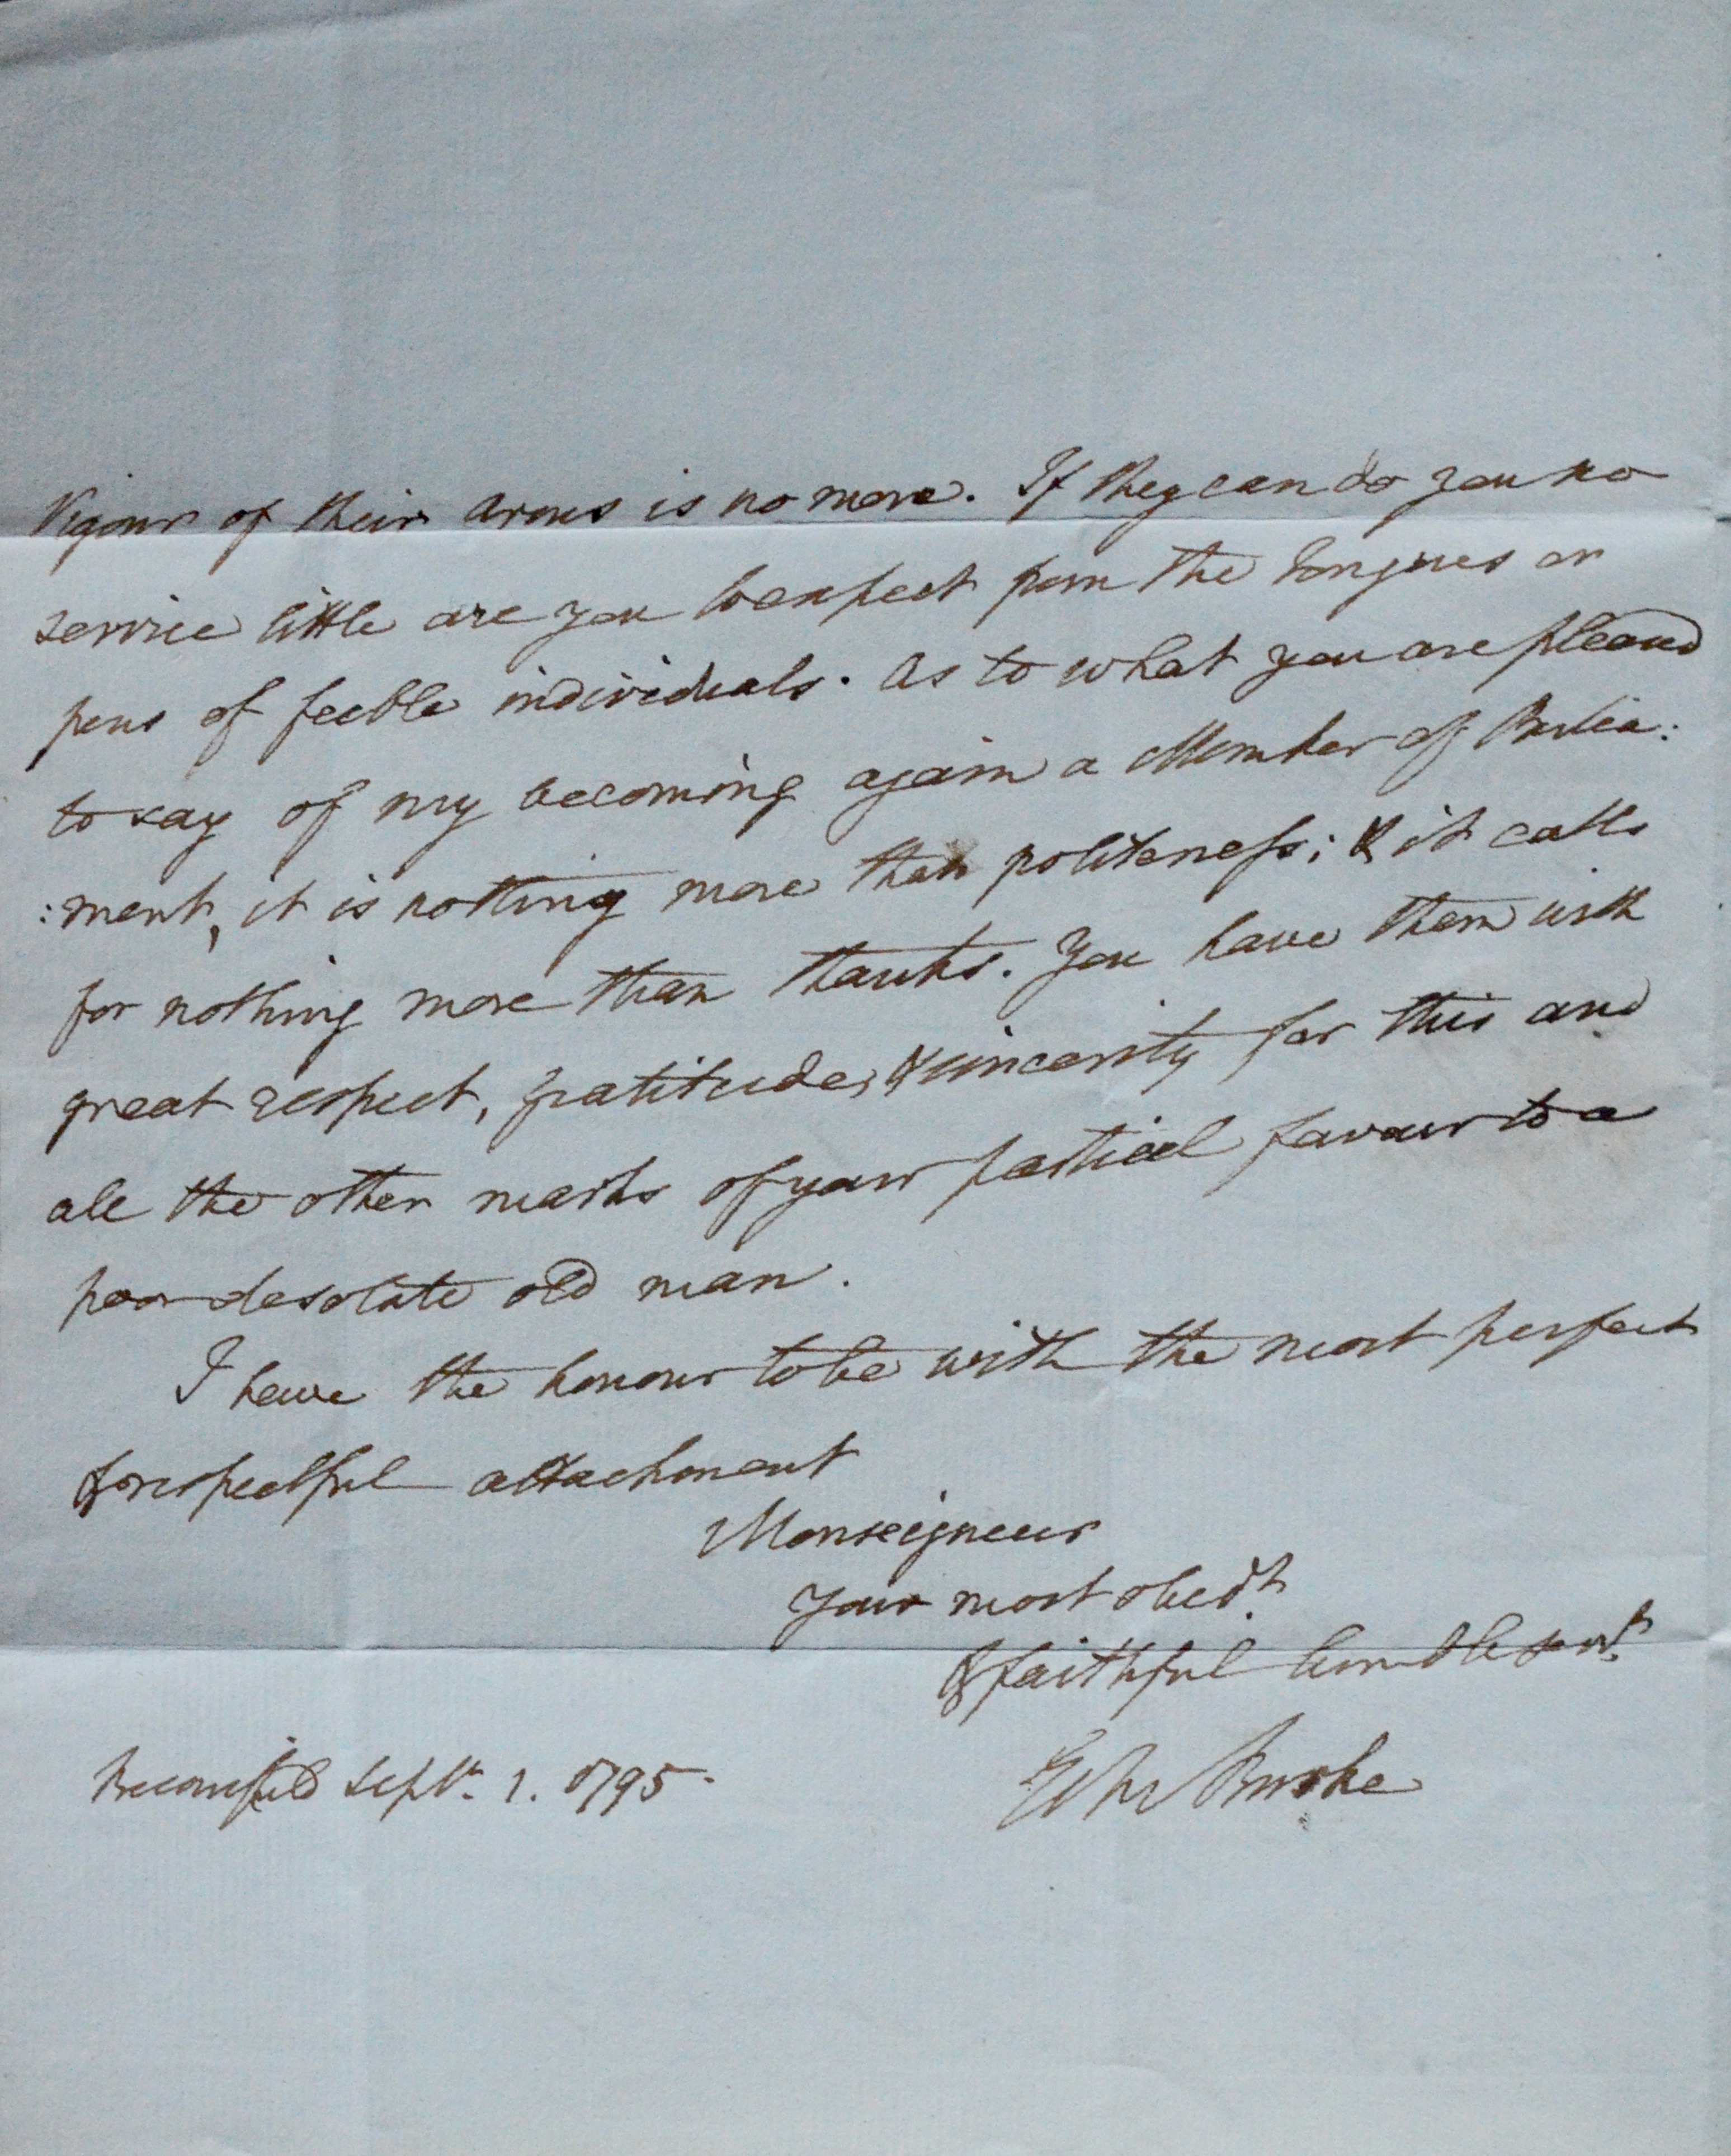 Vigour of their arms is no more. If they can do you no
service little are you to expect from the tongues or
pens of feeble individuals. As to what you are pleasd
to say of my becoming again a Member of Parlia:
:ment, it is nothing more than politeness; & it calls
for nothing more than thanks. You have them with
great respect, gratitude, & sincerity for this and
all the other marks of your partial favour to a
poor desolate old man.
I have the honour to be with the most perfect
& respectful attachment
Monseigneur
Your most obedt.
& faithful humble servt.
Edm Burke
Beconsfield Septr. 1. 1795.